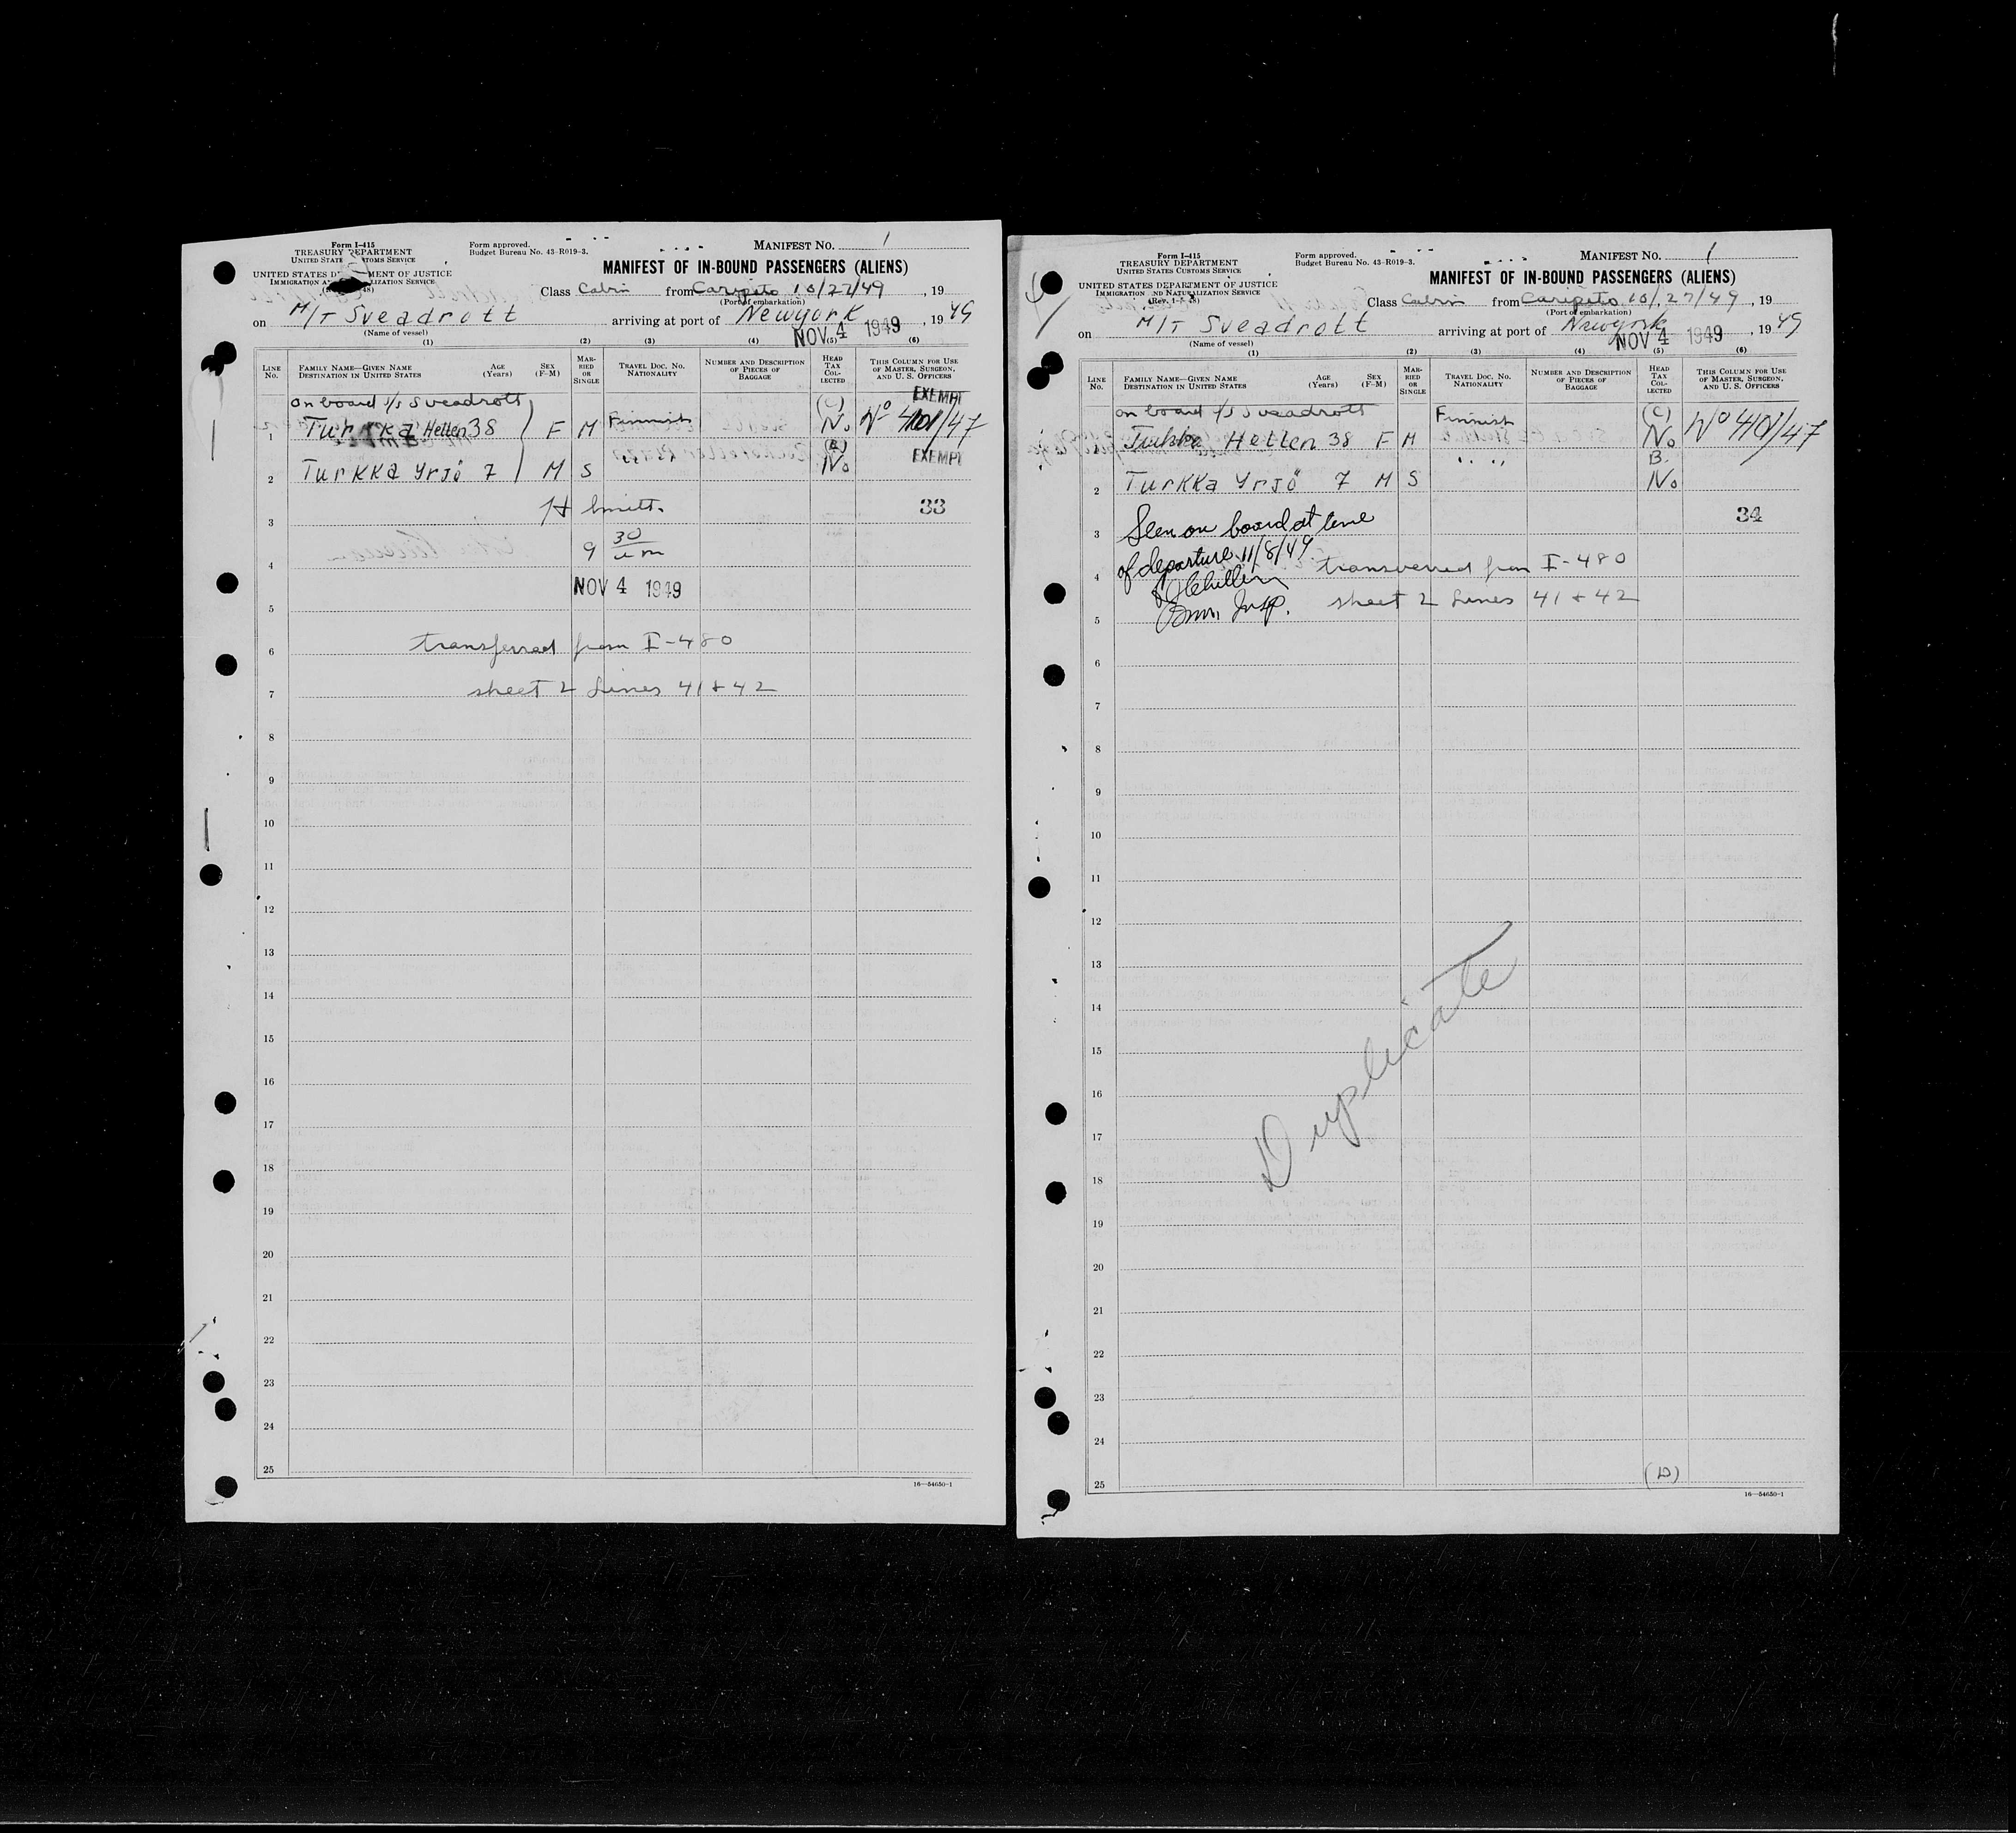 Form I-415
TREASURY DEPARTMENT
UNITED STATES CUSTOMS SERVICE
UNITED STATES DEPARTMENT OF JUSTICE
IMMIGRATION AND NATURALIZATION SERVICE
Form approved.
Budget Bureau No. 43-R019-3.
MANIFEST NO. 1
MANIFEST OF IN-BOUND PASSENGERS (ALIENS)
Class Cabin from Caripito 10/27/49, 19
(Port of embarkation)
on M/T Sveadrott arriving at port of Newyork, 1949
(Name of vessel)
NOV 4 1949
(1) (2) (3) (4) (5) (6)
LINE No. FAMILY NAME—GIVEN NAME DESTINATION IN UNITED STATES AGE (Years) SEX (F-M) MARRIED OR SINGLE TRAVEL DOC. NO. NATIONALITY NUMBER AND DESCRIPTION OF PIECES OF BAGGAGE HEAD TAX COLLECTED THIS COLUMN FOR USE OF MASTER, SURGEON, AND U. S. OFFICERS
on board s/s Sveadrott (C) EXEMPT
1 Turkka Hellen 38 F M Finnish No Nº 4101/47
(B)
2 Turkka Yrjö 7 M S " " No EXEMPT
3 33
9 30
4
NOV 4 1949
5
6 transferred from I-480
7 sheet 2 Lines 41 + 42
8
9
10
11
12
13
14
15
16
17
18
19
20
21
22
23
24
25
16—54650-1
Form I-415
TREASURY DEPARTMENT
UNITED STATES CUSTOMS SERVICE
UNITED STATES DEPARTMENT OF JUSTICE
IMMIGRATION AND NATURALIZATION SERVICE
Form approved.
Budget Bureau No. 43-R019-3.
MANIFEST NO. 1
MANIFEST OF IN-BOUND PASSENGERS (ALIENS)
Class Cabin from Caripito 10/27/49, 19
(Port of embarkation)
on M/T Sveadrott arriving at port of Newyork, 1949
(Name of vessel)
NOV 4 1949
(1) (2) (3) (4) (5) (6)
LINE No. FAMILY NAME—GIVEN NAME DESTINATION IN UNITED STATES AGE (Years) SEX (F-M) MARRIED OR SINGLE TRAVEL DOC. NO. NATIONALITY NUMBER AND DESCRIPTION OF PIECES OF BAGGAGE HEAD TAX COLLECTED THIS COLUMN FOR USE OF MASTER, SURGEON, AND U. S. OFFICERS
on board s/s Sveadrott (C)
1 Turkka Hellen 38 F M Finnish No Nº 4101/47
B.
2 Turkka Yrjö 7 M S " " No
3 Seen on board at time 34
4 of departure 11/8/49 transverred from I-480
5 Imm. Insp. sheet 2 Lines 41 + 42
6
7
8
9
10
11
12
13
14
15
16
17
18
19
20
21
22
23
24
25
Duplicate
16—54650-1